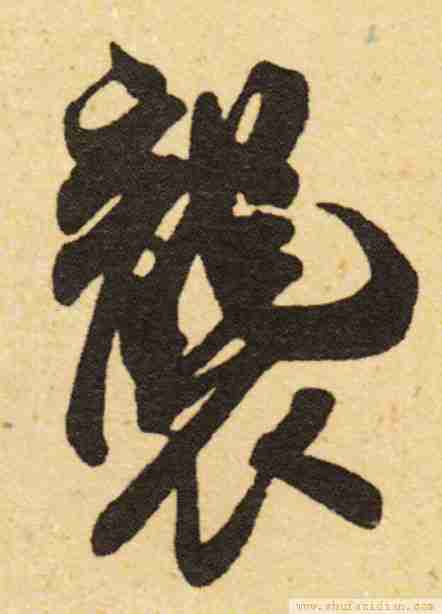 襲
www.shufazidian.com